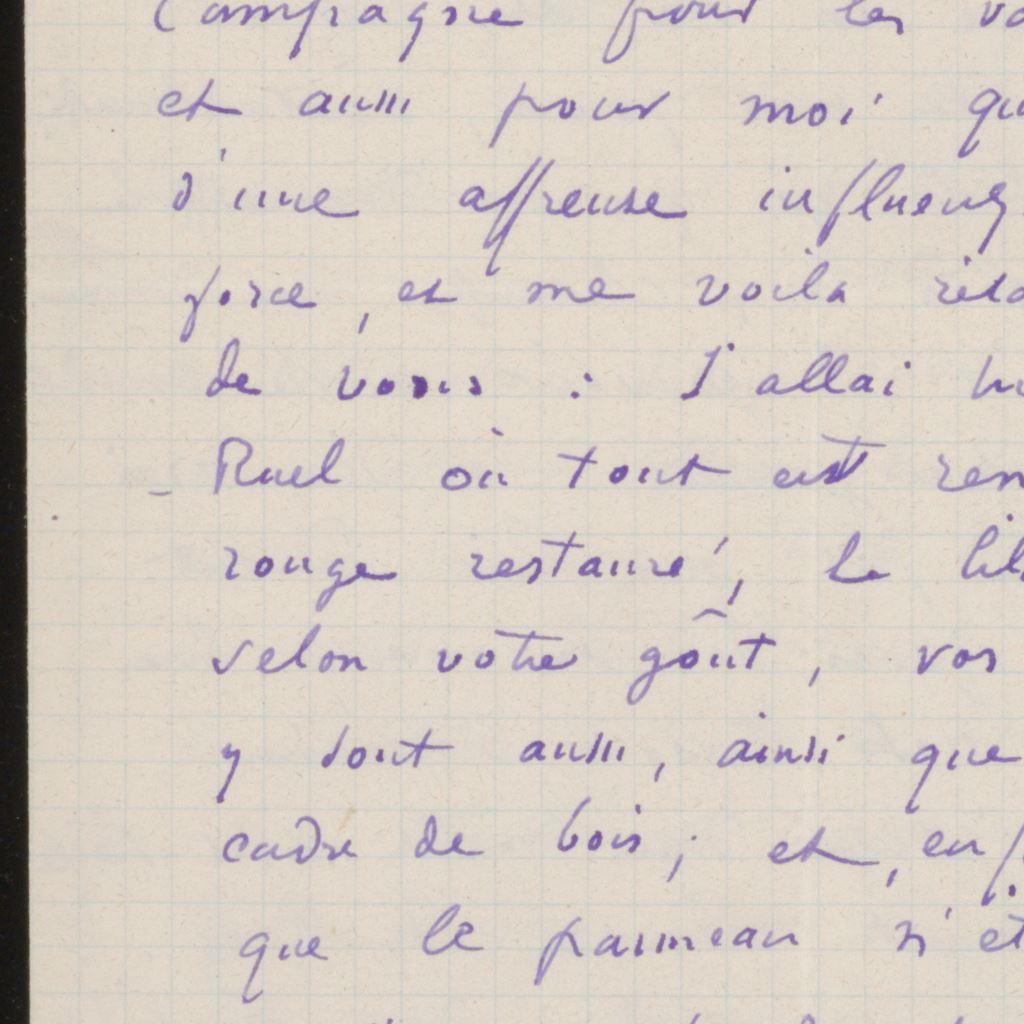 Campagne pour les va
et aussi pour moi qu
d'une affreuse influenz
force, et me voila
de vous : J'allai
Ruel où tout est ren
rouge restauré, le
selon vôtre goût, vos
y sont aussi, ainsi que
cadre de bois ; et, enf
que le panneau n'ét